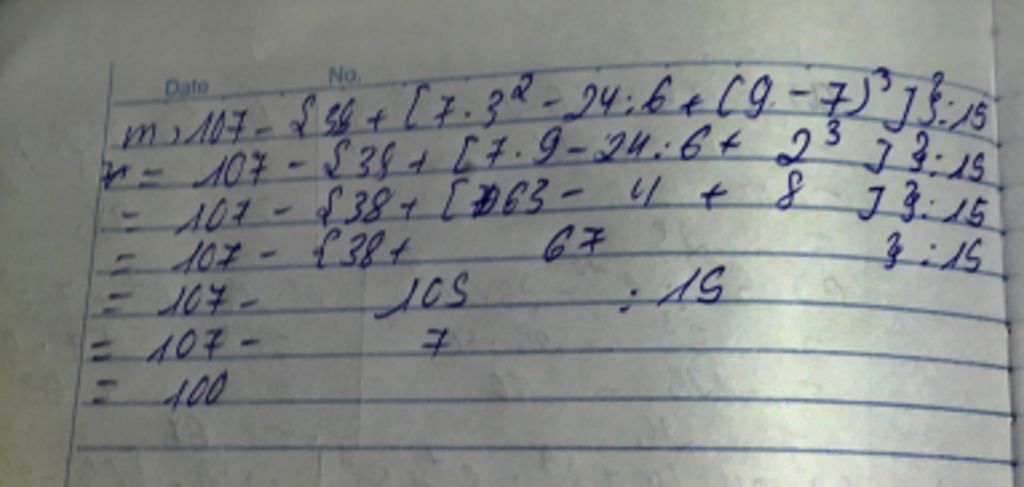 Date No.
m, 107 - {38 + [7.3² - 24:6 + (9 - 7)³]}:15
= 107 - {38 + [7.9 - 24:6 + 2³]}:15
= 107 - {38 + [63 - 4 + 8]}:15
= 107 - {38 + 67}:15
= 107 - 105 : 15
= 107 - 7
= 100